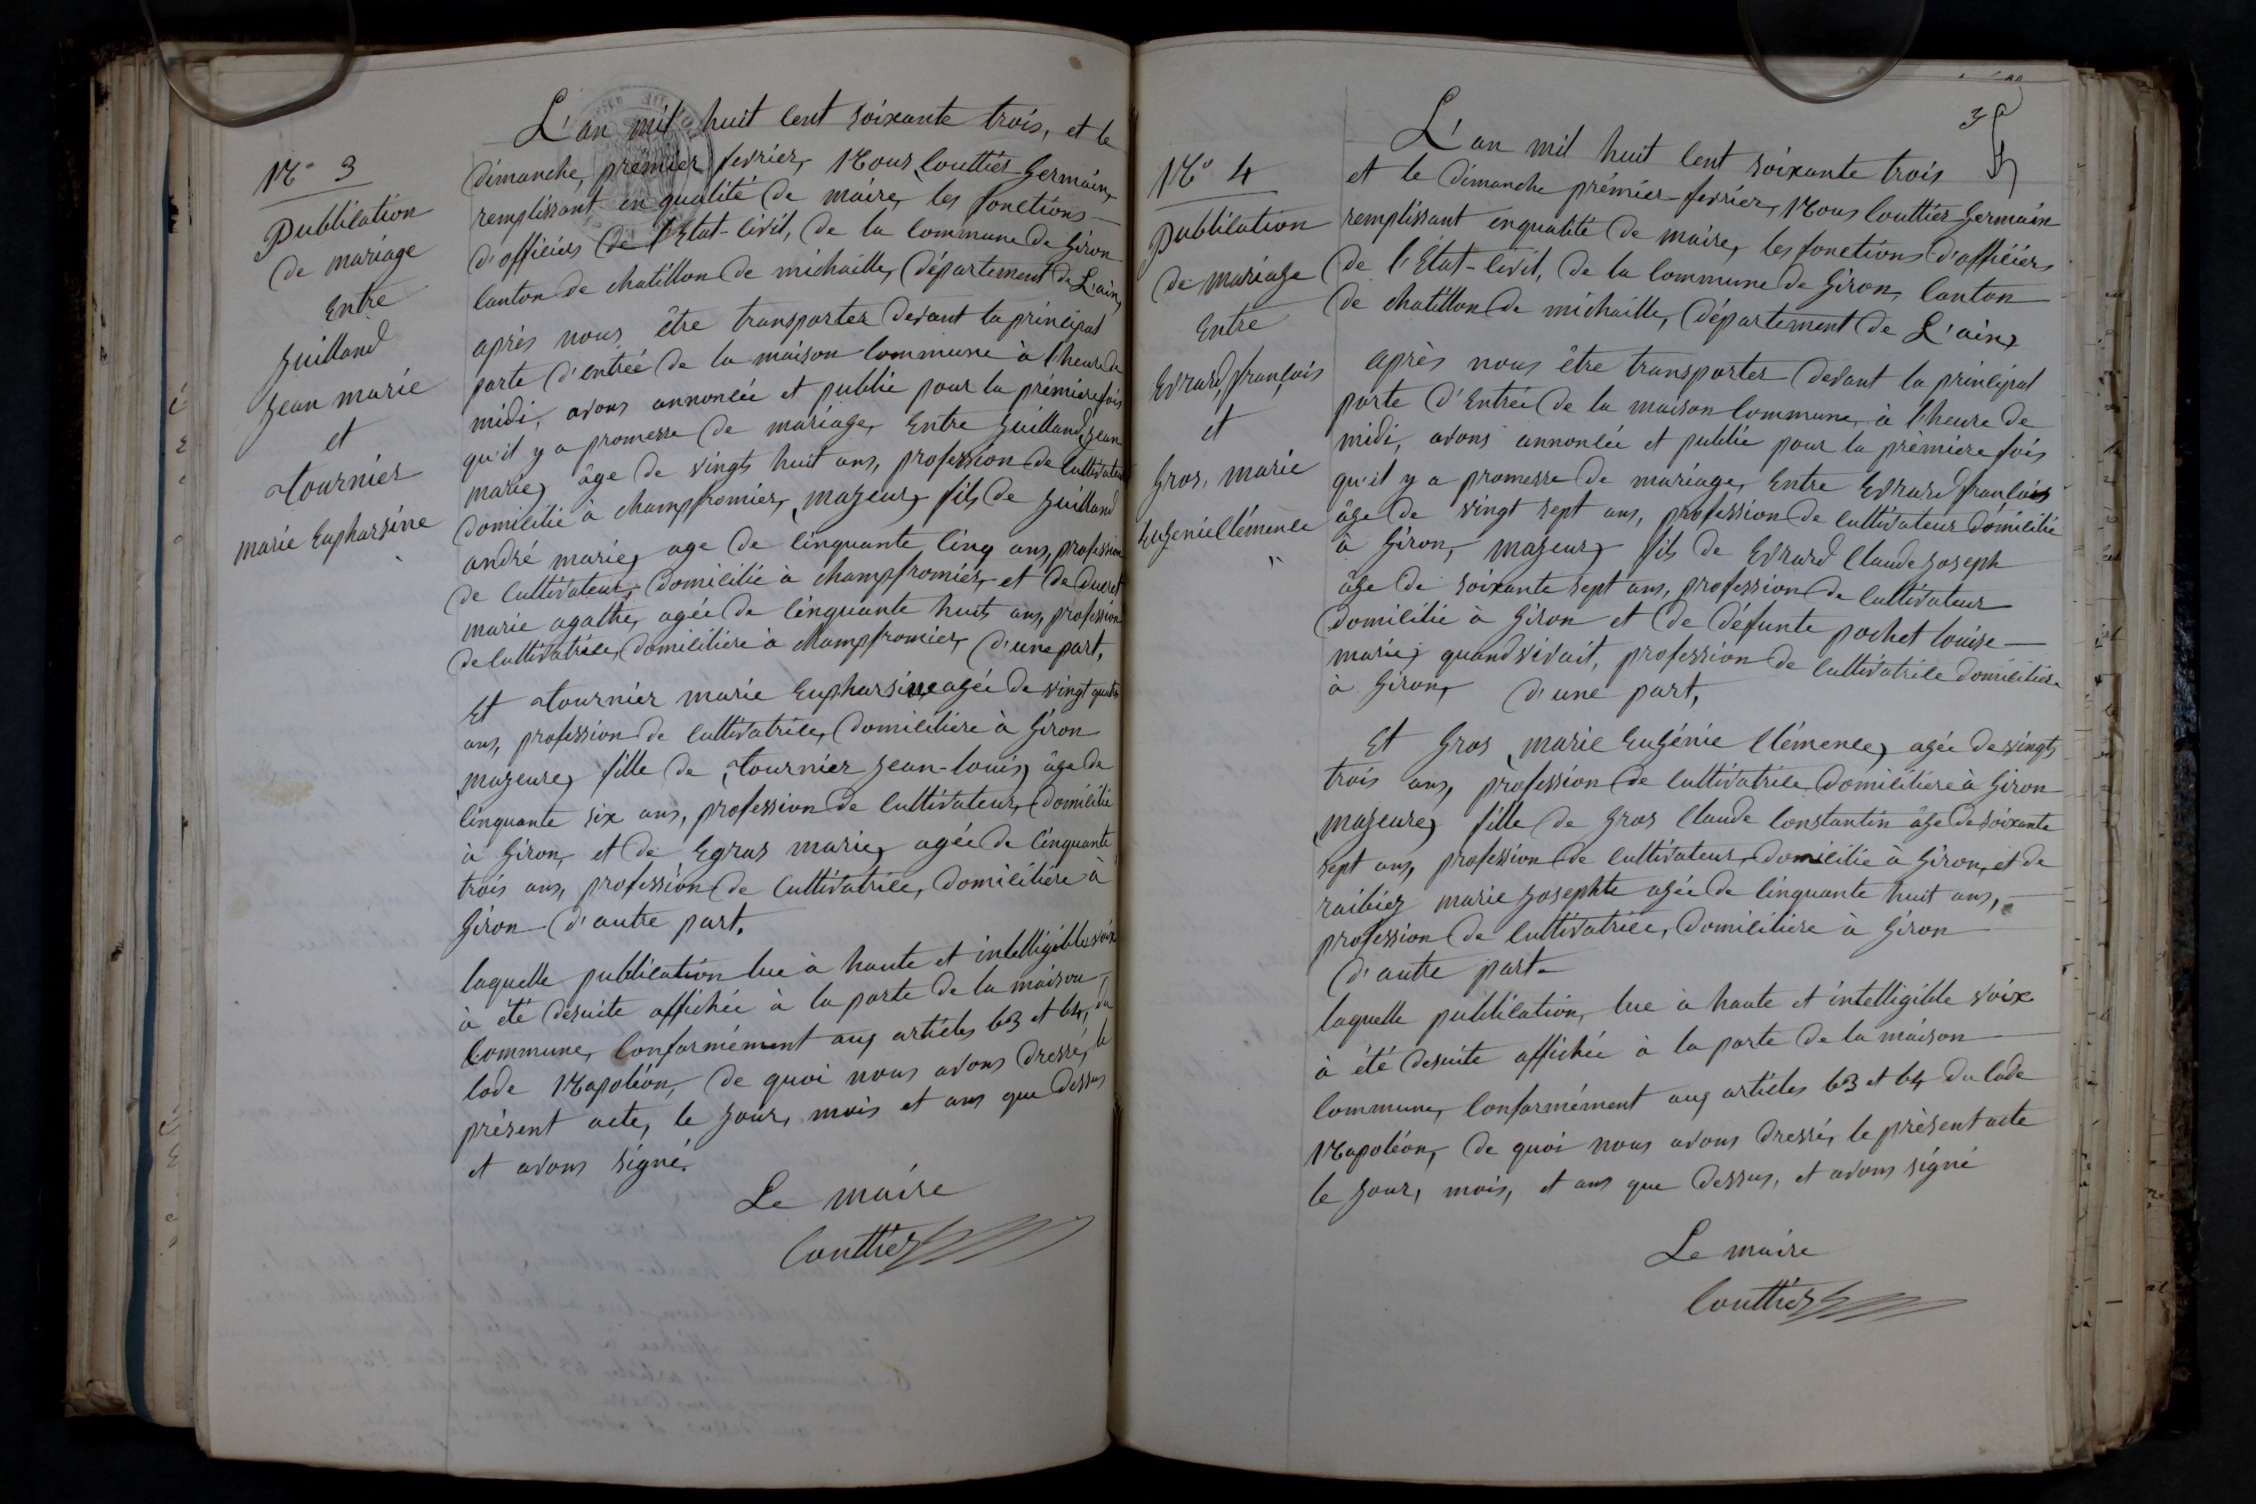 N° 3
Publication
de mariage
Entre
Guilland
Jean marie
et
Tournier
marie Eupharsine
L'an mil huit cent soixante trois, et le
dimanche, prémier fevrier, Nous Couttier Germain,
remplissant en qualité de maire, les fonctions
d'officier de l'Etat-civil, de la commune de Giron
canton de chatillon de michaille, département de L'ain,
après nous être transporter devant la principal
porte d'entrée de la maison commune à l'heure de
midi, avons annoncée et publié pour la prémière fois
qu'il y a promesse de mariage, Entre Guilland, Jean
marie, âge de vingt huit ans, profession de cultivateur
domicilié à champfromier, majeur, fils de Guilland
andré marie, age de cinquante cinq ans, profession
de cultivateur, domicilié à champfromier, et de Ducret
marie agathe, agée de cinquante huit ans, profession
de cultivatrice, domicilière à champfromier, d'une part,
Et Tournier marie Eupharsine agée de vingt quatre
ans, profession de cultivatrice, domicilière à Giron
majeure, fille de Tournier Jean-louis, âge de
cinquante six ans, profession de cultivateur, domicilié
à Giron, et de Egras marie, agée de cinquante
trois ans, profession de cultivatrice, domicilière à
Giron d'autre part.
laquelle publication lue à haute et intelligible voix
à été desuite affichée à la porte de la maison
commune, conformément aux articles 63 et 64, du
code Napoléon, de quoi nous avons dressé, le
présent acte, le jour, mois et ans que dessus
et avons signé.
Le maire
Couttier
3
N° 4
Publication
de mariage
Entre
Evrard, françois
et
Gros, marie
Eugenie Clémence
"
L'an mil huit cent soixante trois
et le dimanche prémier fevrier, Nous Couttier Germain
remplissant enqualité de maire, les fonctions d'officier
de l'Etat-civil, de la commune de Giron, canton
de chatillon de michaille, département de L'ain,
après nous être transporter devant la principal
porte d'Entrée de la maison commune, à l'heure de
midi, avons annoncée et publié pour la prémière fois
qu'il y a promesse de mariage, Entre Evrard françois
âge de vingt sept ans, profession de cultivateur domicilié
à Giron, majeur, fils de Evrard Claude joseph
âge de soixante sept ans, profession de cultivateur
domicilié à Giron et de défunte pochet louise
marie, quand vivait, profession de cultivatrice domicilière
à Giron, d'une part,
Et Gros marie Eugénie Clémence, agée de vingt
trois ans, profession de cultivatrice domicilière à Giron
majeure, fille de Gros Claude Constantin âge de soixante
sept ans, profession de cultivateur, domicilié à Giron, et de
marie josephte agée de cinquante huit ans,
profession de cultivatrice, domicilière à Giron
d'autre part.
laquelle publication, lue à haute et intelligible voix
à été desuite affichée à la porte de la maison
commune, conformément aux articles 63 et 64 du code
Napoléon, de quoi nous avons dressé, le présent acte
le jour, mois, et ans que dessus, et avons signé
Le maire
Couttier